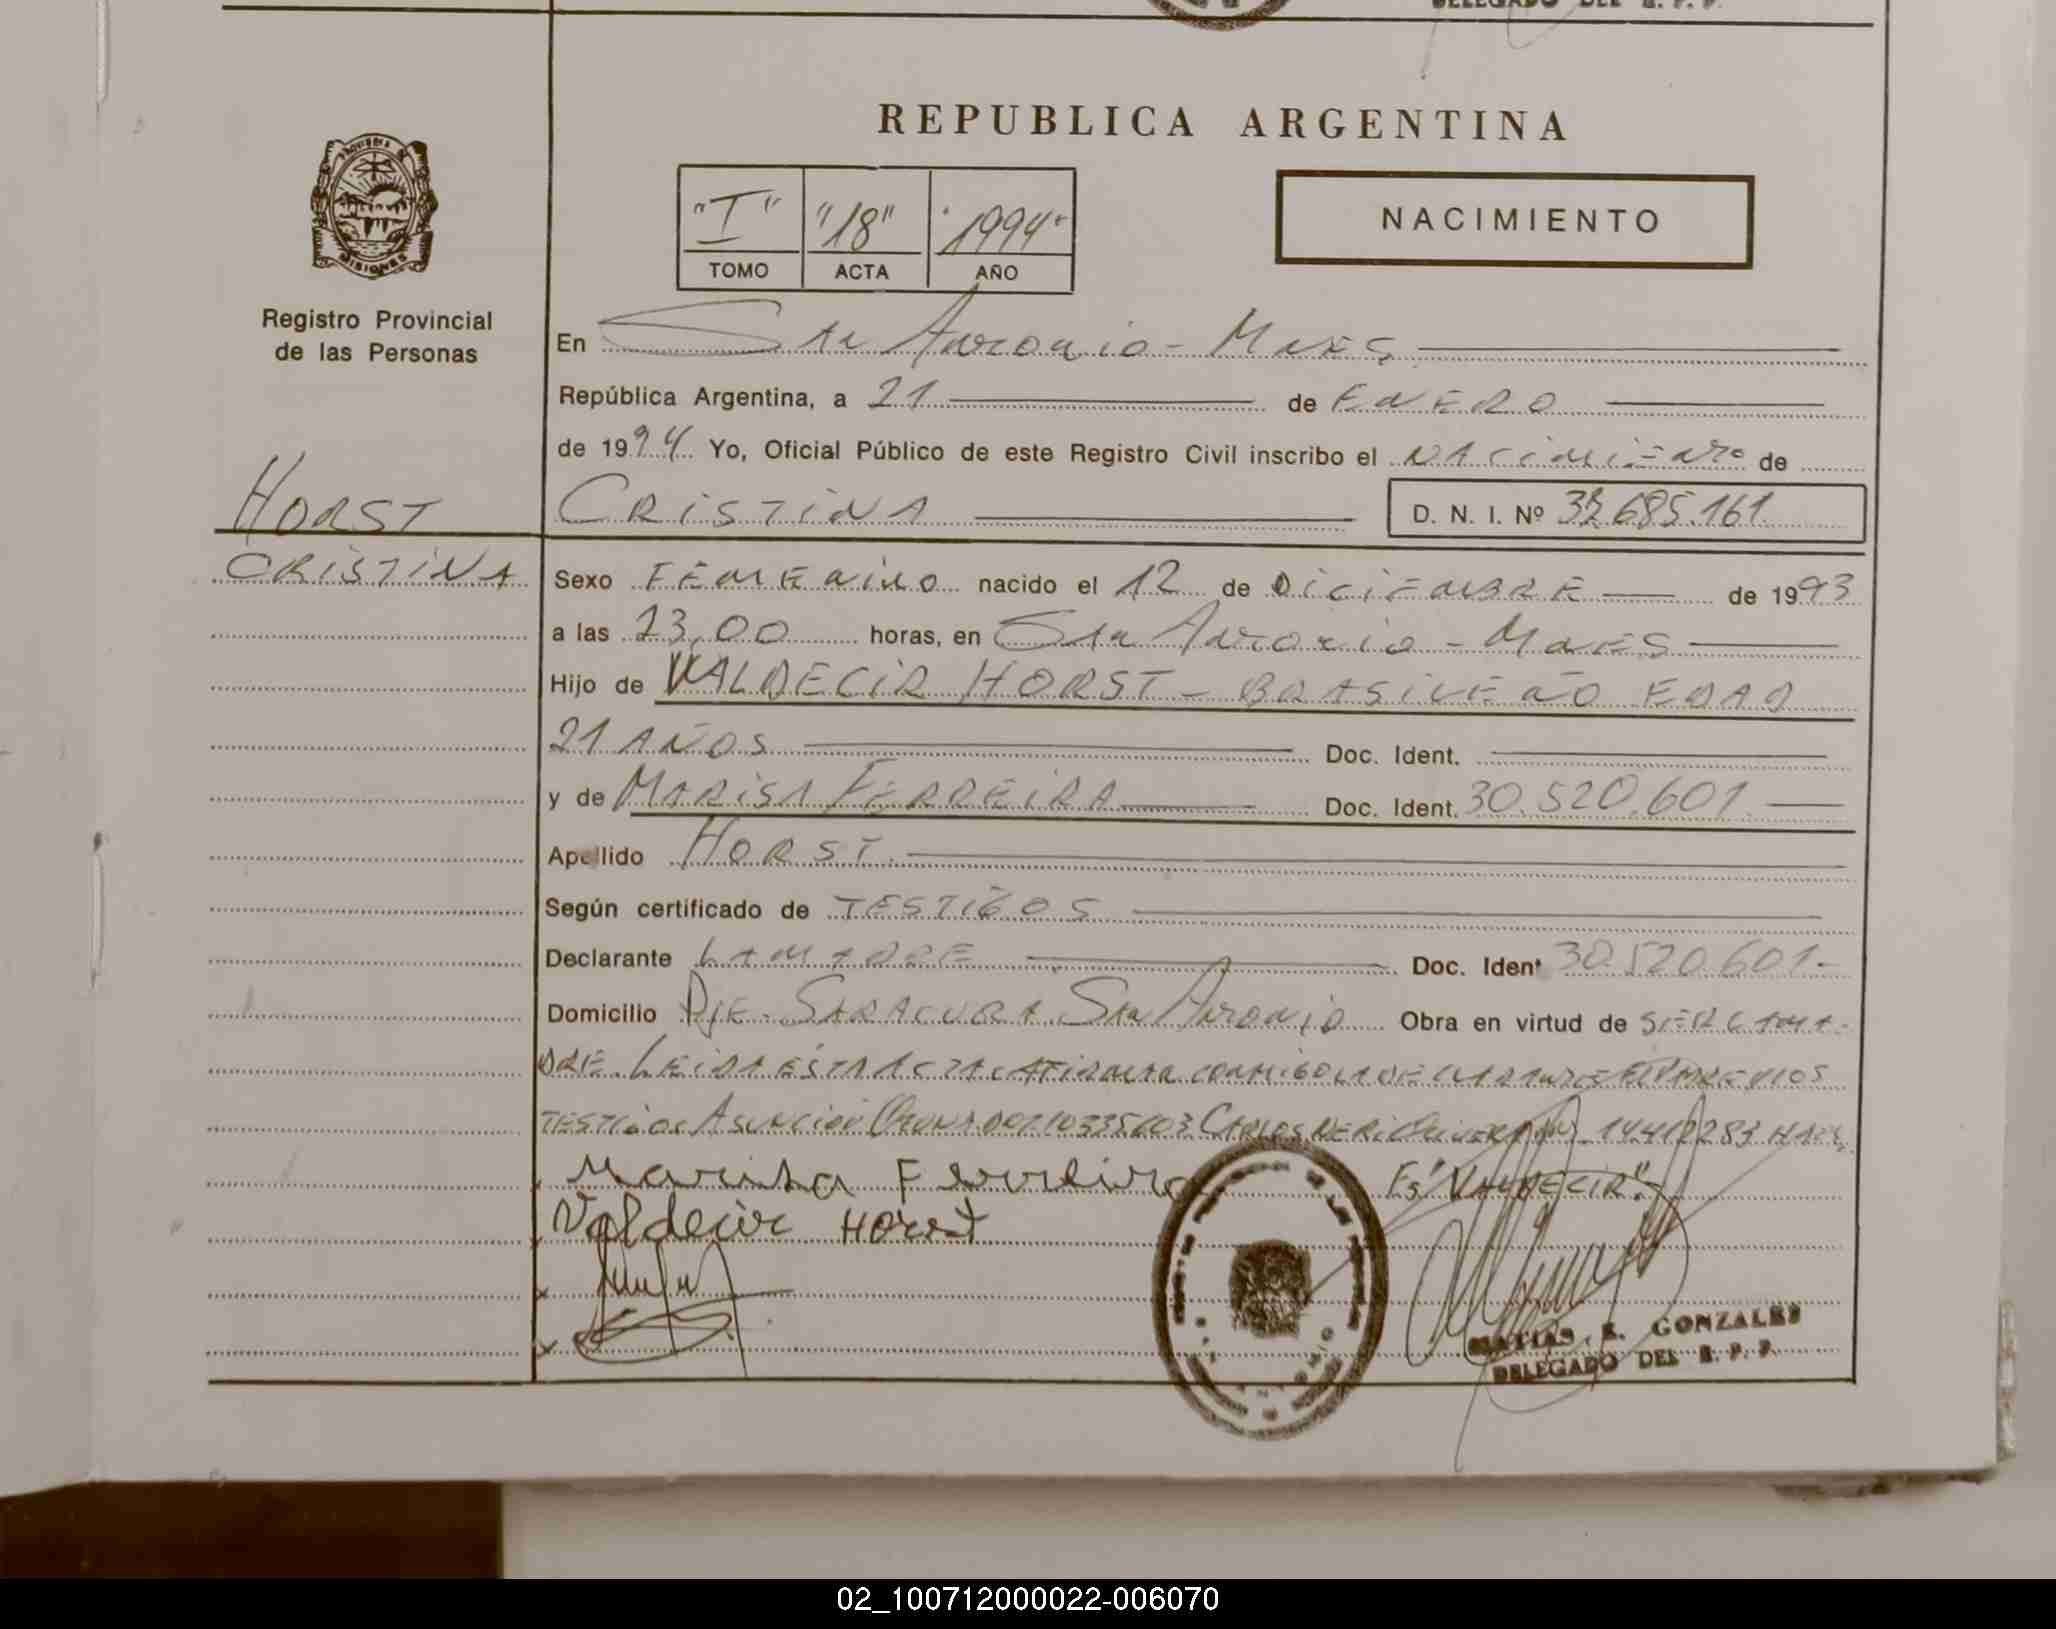 DELEGADO DEL R. P. P.
REPUBLICA ARGENTINA
"I" "18" "1994"
TOMO ACTA AÑO
NACIMIENTO
MISIONES
Registro Provincial
de las Personas
En San Antonio - Mnes
República Argentina, a 21 de ENERO
de 1994 Yo, Oficial Público de este Registro Civil inscribo el NACIMIENTO de
HORST
CRISTINA
CRISTINA D. N. I. Nº 685.161
Sexo FEMENINO nacido el 12 de DICIEMBRE de 1993
a las 23,00 horas, en San Antonio - Mnes
Hijo de VALDECIR HORST - BRASILEÑO EDAD
21 AÑOS Doc. Ident.
y de MARISA FERREIRA Doc. Ident. 30.520.601
Apellido HORST
Según certificado de TESTIGOS
Declarante LA MADRE Doc. Ident 30.520.601-
Domicilio Pje. SARACURA San Antonio Obra en virtud de SER LA MA-
DRE. LEIDA ESTA ACTA LA FIRMAN CONMIGO LA DECLARANTE EL PADRE Y LOS
TESTIGOS ASUNCION DNI CARLOS NERI OLIVERA
Marisa Ferreira Es "VALDECIR"
Valdecir Horst
MATIAS E. GONZALES
DELEGADO DEL R. P. P.
02_100712000022-006070